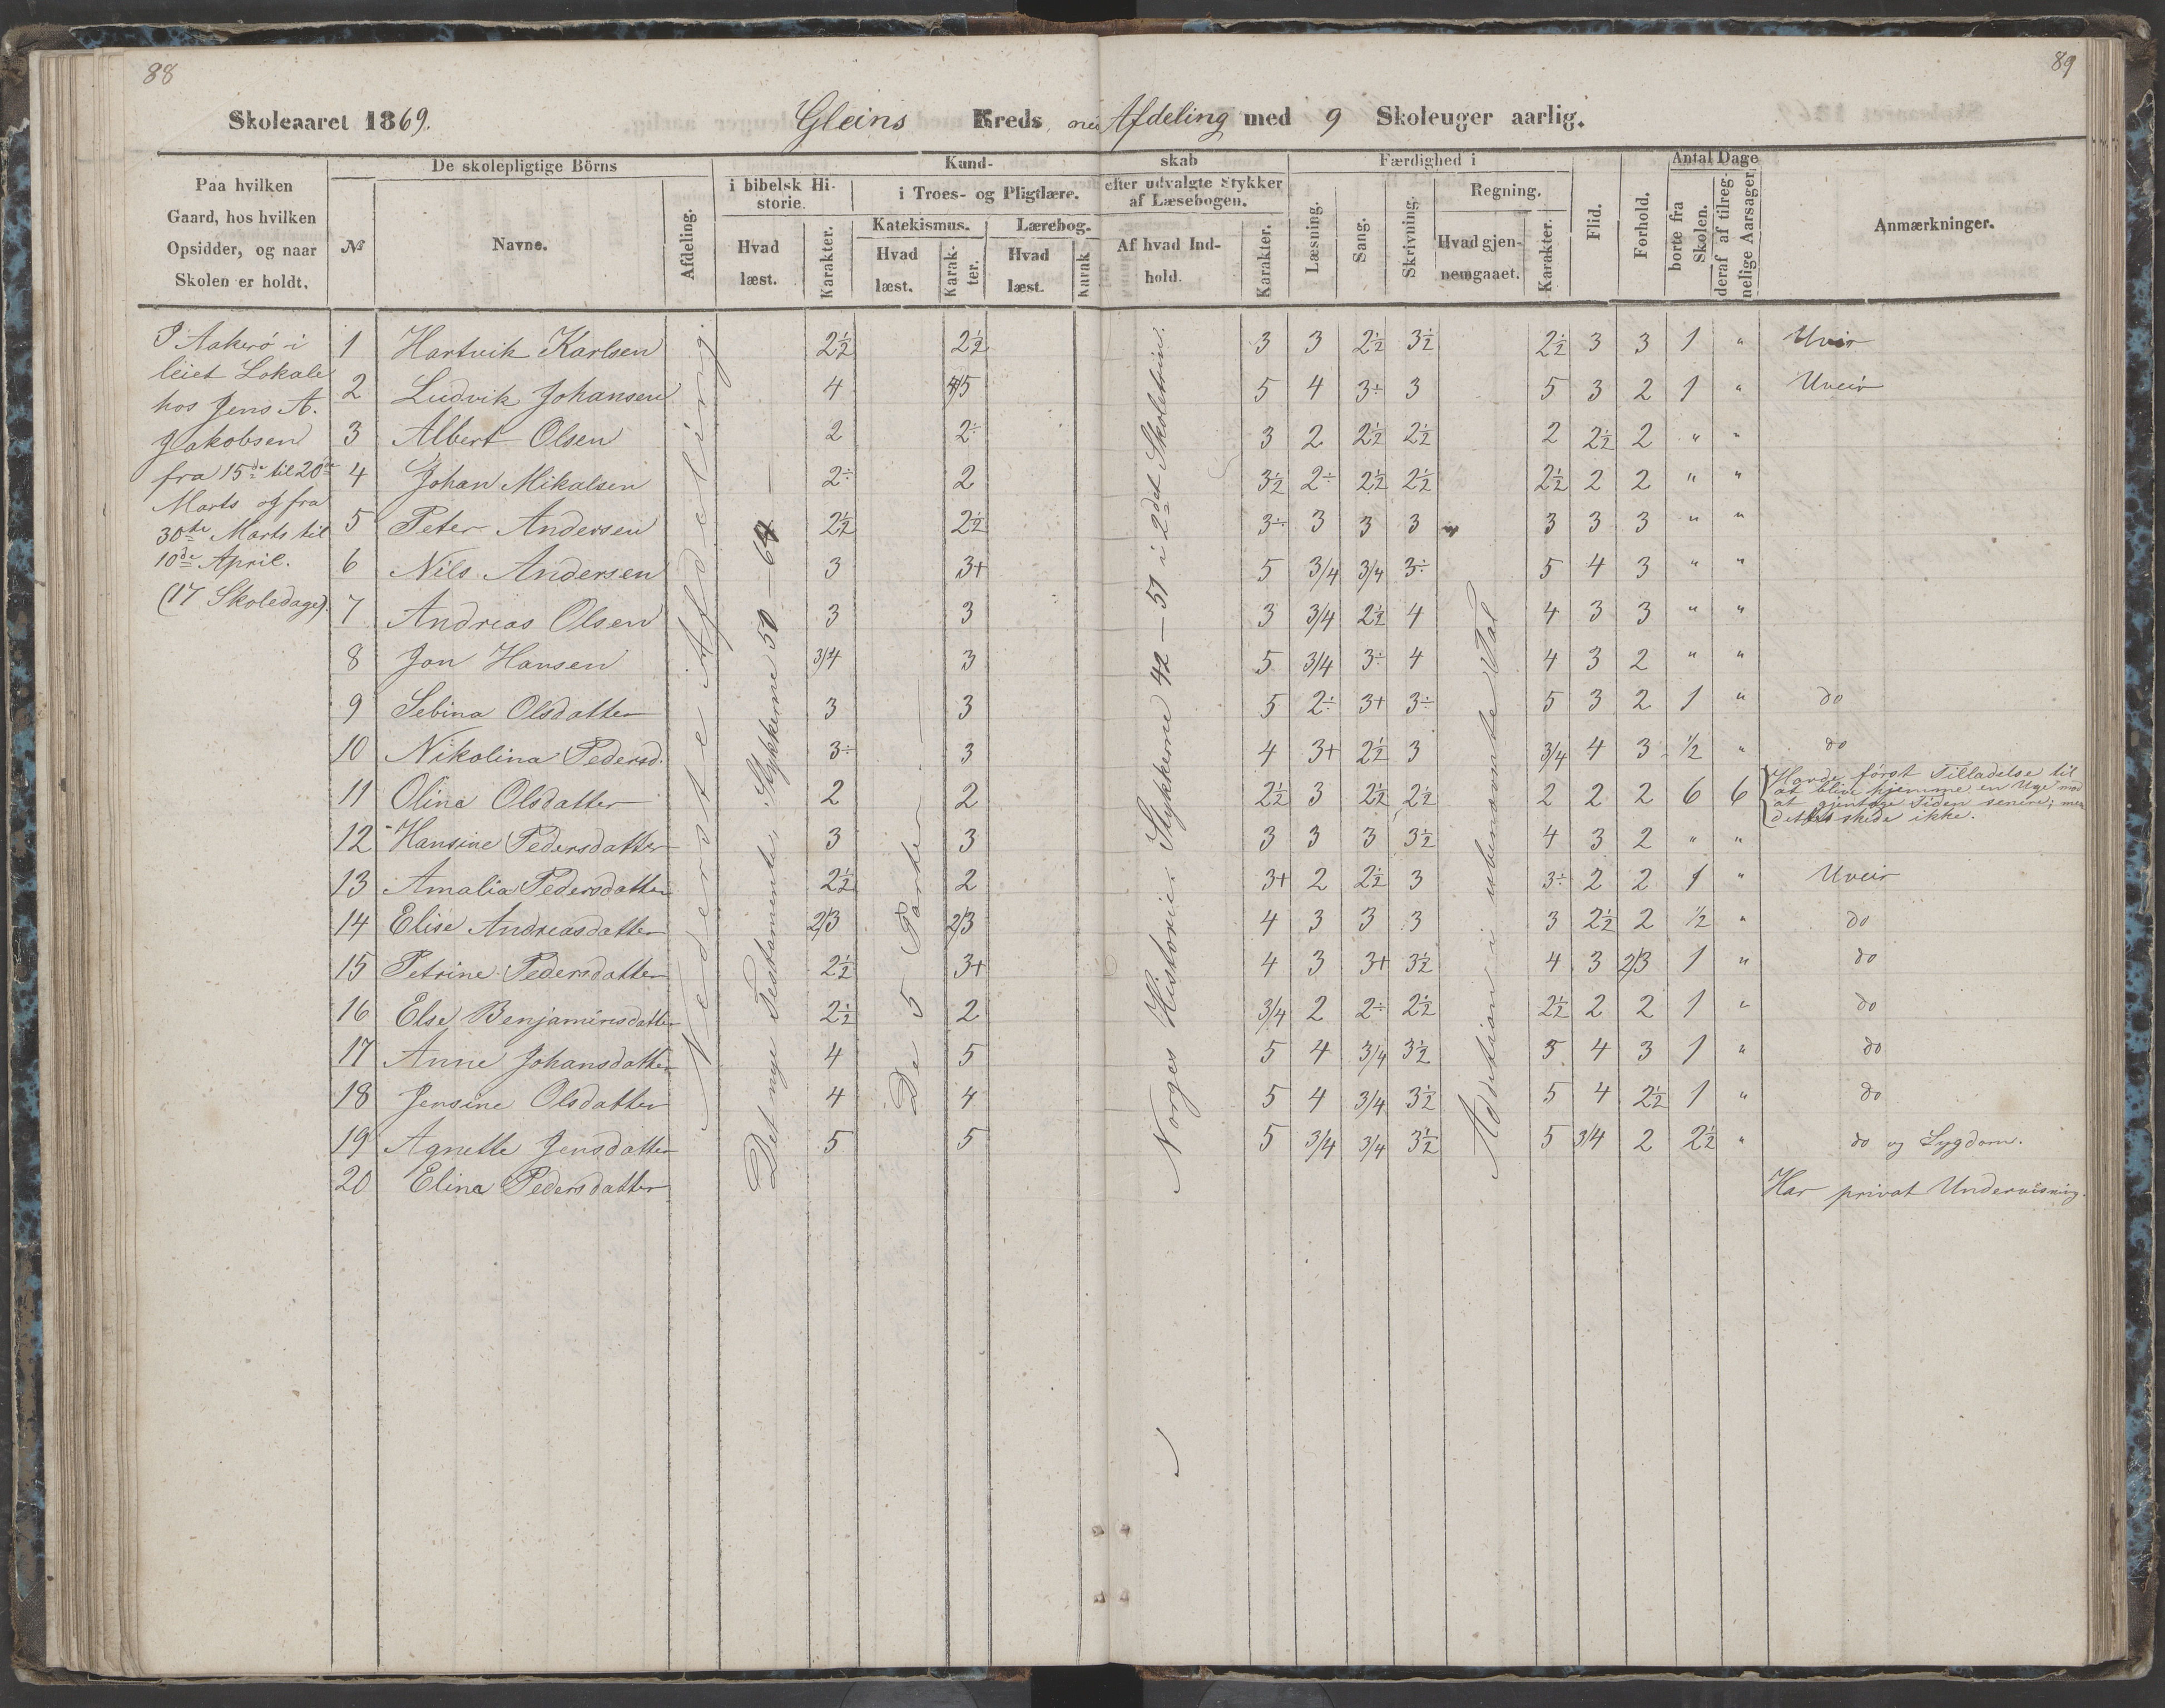 88
89
Skoleaaret 1869. Gleins Kreds, Afdeling med 9 Skoleuger aarlig.
Paa hvilken Gaard, hos hvilken Opsidder, og naar Skolen er holdt.
De skolepligtige Börns
№ Navne. Afdeling.
Kundskab
i bibelsk Historie. Hvad læst. Karakter.
i Troes- og Pligtlære.
Katekismus. Hvad læst. Karakter.
Lærebog. Hvad læst. Karak
efter udvalgte Stykker af Læsebogen. Af hvad Indhold. Karakter.
Færdighed i
Læsning. Sang. Skrivning. Regning. Hvad gjennemgaaet. Karakter.
Flid. Forhold.
Antal Dage
borte fra Skolen. deraf af tilregnelige Aarsager.
Anmærkninger.
I Aakerø i
leiet Lokale
hos Jens A.
Jakobsen
fra 15de til 20de
Marts og fra
30te Marts til
10de April.
(17 Skoledage).
Nederste Afdeling.
Det nye Testamente, Stykkerne 50 — 64 —
De 5 Parter. —
Norges Historie: Stykkerne 42 — 51 i 2det Skoletrin.
Addition i ubenævnte Tal
1 Hartvik Karlsen 2½ 2½ 3 3 2½ 3½ 2½ 3 3 1 " Uveir
2 Ludvik Johansen 4 4/5 5 4 3÷ 3 5 3 2 1 " Uveir
3 Albert Olsen 2 2÷ 3 2 2½ 2½ 2 2½ 2 " "
4 Johan Mikalsen 2÷ 2 3½ 2÷ 2½ 2½ 2½ 2 2 " "
5 Peter Andersen 2½ 2½ 3÷ 3 3 3 " 3 3 3 " "
6 Nils Andersen 3 3+ 5 3/4 3/4 3÷ 5 4 3 " "
7 Andreas Olsen 3 3 3 3/4 2½ 4 4 3 3 " "
8 Jon Hansen 3/4 3 5 3/4 3÷ 4 4 3 2 " "
9 Sebina Olsdatter 3 3 5 2÷ 3+ 3÷ 5 3 2 1 " do
10 Nikolina Pedersd. 3÷ 3 4 3+ 2½ 3 3/4 4 3 ½ " do
11 Olina Olsdatter 2 2 2½ 3 2½ 2½ 2 2 2 6 6 Havde først Tilladelse til
at blive hjemme en Uge mod
at gjentage Tiden senere; men
dette skede ikke.
12 Hansine Pedersdatter 3 3 3 3 3 3½ 4 3 2 " "
13 Amalia Pedersdatter 2½ 2 3+ 2 2½ 3 3÷ 2 2 1 " Uveir
14 Elise Andreasdatter 2/3 2/3 4 3 3 3 3 2½ 2 ½ " do
15 Petrine Pedersdatter 2½ 3+ 4 3 3+ 3½ 4 3 2/3 1 " do
16 Else Benjaminsdatter 2½ 2 3/4 2 2÷ 2½ 2½ 2 2 1 " do
17 Anne Johansdatter 4 5 5 4 3/4 3½ 5 4 3 1 " do
18 Jensine Olsdatter 4 4 5 4 3/4 3½ 5 4 2½ 1 " do
19 Agnette Jensdatter 5 5 5 3/4 3/4 3½ 5 3/4 2 2½ " do og Sygdom.
20 Elina Pedersdatter Har privat Undervisning.